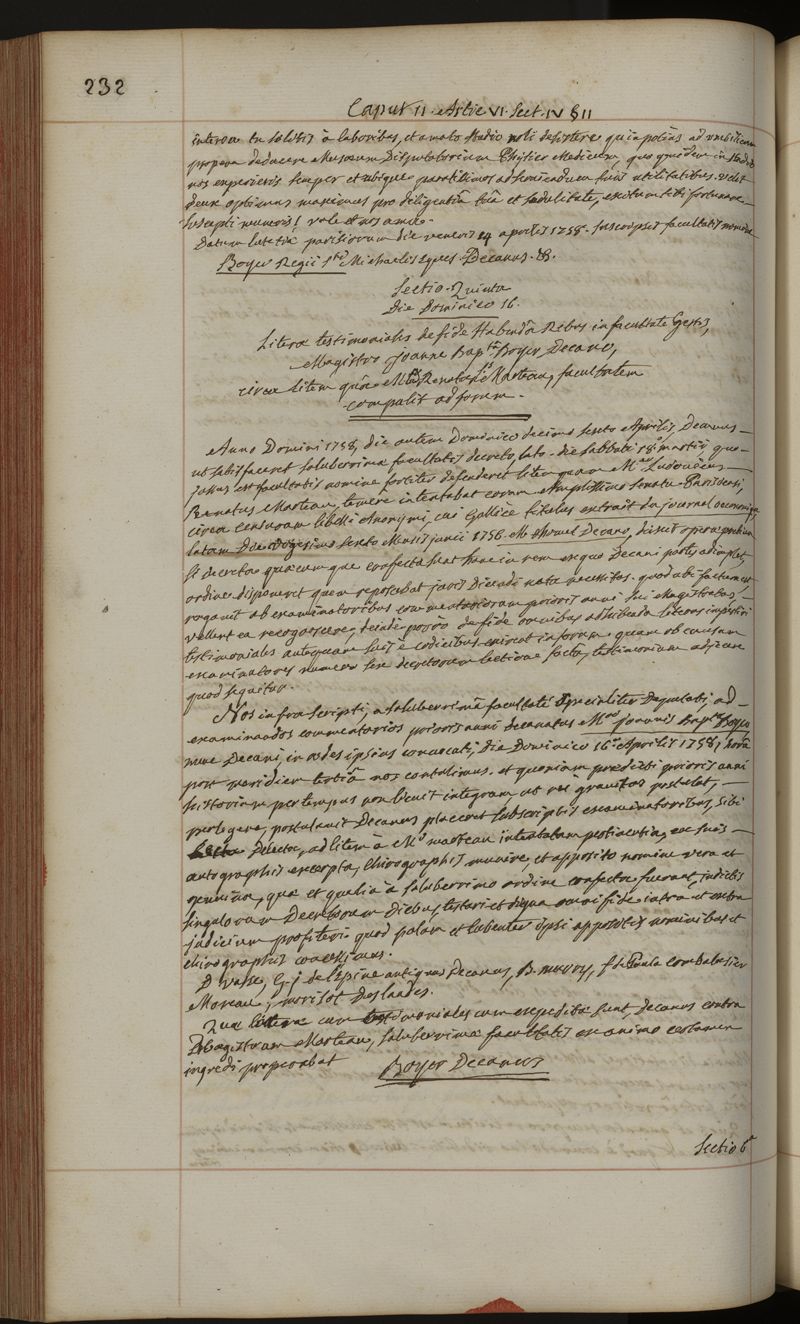 232
Caput II. Artic VI. Sect. IV § II
interea tu solitis à laboribus, et amato studio noli desistere quia potiùs ad umbilicum
propera deducere Musæum Physico Medicum, quo quidem in
nos experieris semper et ubique paratissimos ad tuis utilitatibus. velit
deus optimus maximus pro diligentiâ tuâ et sedulitate, exitum tibi fortunare
suscepti muneris! vale et nos ama.
Datum lutetiæ parisiorum die veneris 14 aprilis 1758. subscripsit facultatis nomine
Boyer Regii sti Michaelis eques Decanus. &.
Sectio Quinta
Die Dominico 16.
Literæ testimoniales de fide Habendâ Rebus in facultate Gestis,
Magistro Joanne Bapta Boyer Decano,
circa litem quâ Mus Renatus Marteau, facultatem
compulit ad forum.
Anno Domini 1758, die autem Dominico decimo sexto Aprilis, Decanus
ut satisfaceret saluberrimæ facultatis decreto, lato die sabbati 18 martii quo
jussus est facultatis nomine fortiter defenderet litem quam Mer Ludovicus
Renatus Marteau, temerè intentabat coram Amplissimo Senatu Parisiensi,
circa censuram libelli Anonymi, cui Gallicè titulus extrait du journal œconomique,
latam Die vigesimo sexto Mensis junii 1756. Mo Decano, duxit operæ pretium
si decreta quæcumque confecta sunt hanc in rem ex quo Decani partes adimplet,
ordine disponeret quem reposcebat juris Dicundi nata necessitas. quod ubi factum est
rogavit ab examinatoribus commentariorum prioris anni sui Magistratus,
vellent ea recognoscere, deinde porrò de fide omnibus adhibenda literas impertiri
testimoniales antequam suis è codicibus exirent in forum quam ob causam
examinatores numero sex decretorum lectione factâ, testimonium adjecere
quod sequitur.
Nos infra scripti, a saluberrimâ facultate specialiter Deputati, ad
examinandos commentarios prioris anni decanatus Mri Joannis Bapte Boyer
nunc Decani, in ædes ipsius convocati, die Dominico 16â Aprilis 1758, horâ
post meridiem tertiâ nos contulimus. et quoniam prædicti prioris anni
historiam per tempus non licuit integram ut rei gravitas postulat,
perlegere, postulavit Decanus placeret subscriptis examinatoribus, sibi
Decreta, ad litem à Mo marteau intentatam pertinentia, ex suis
autographis excerpta, chirographis munire, et apposito nomine vera et
genuina, quæ et qualia à saluberrimo ordine confecta fuerant, indictis
singulorum Decretorum diebus, testari et digna omni fide intrà et extra
judicium profiteri quod palam et lubenter ipsi appositis nominibus et
chirographis concessimus.
D vasse, G. j de l'Epine antiquus Decanus, B. murry, f de Paula combalusier
Moreau, morisot Deslandes.
Quæ litteræ cum testimoniales cum expeditæ sunt, Decanus contra
Magistrum Marteau, saluberrimæ facultatis ex animo certamen
ingredi properabat
Boyer Decanus
Sectio 6a